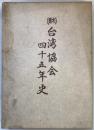 (財)台湾協会
四十五年史